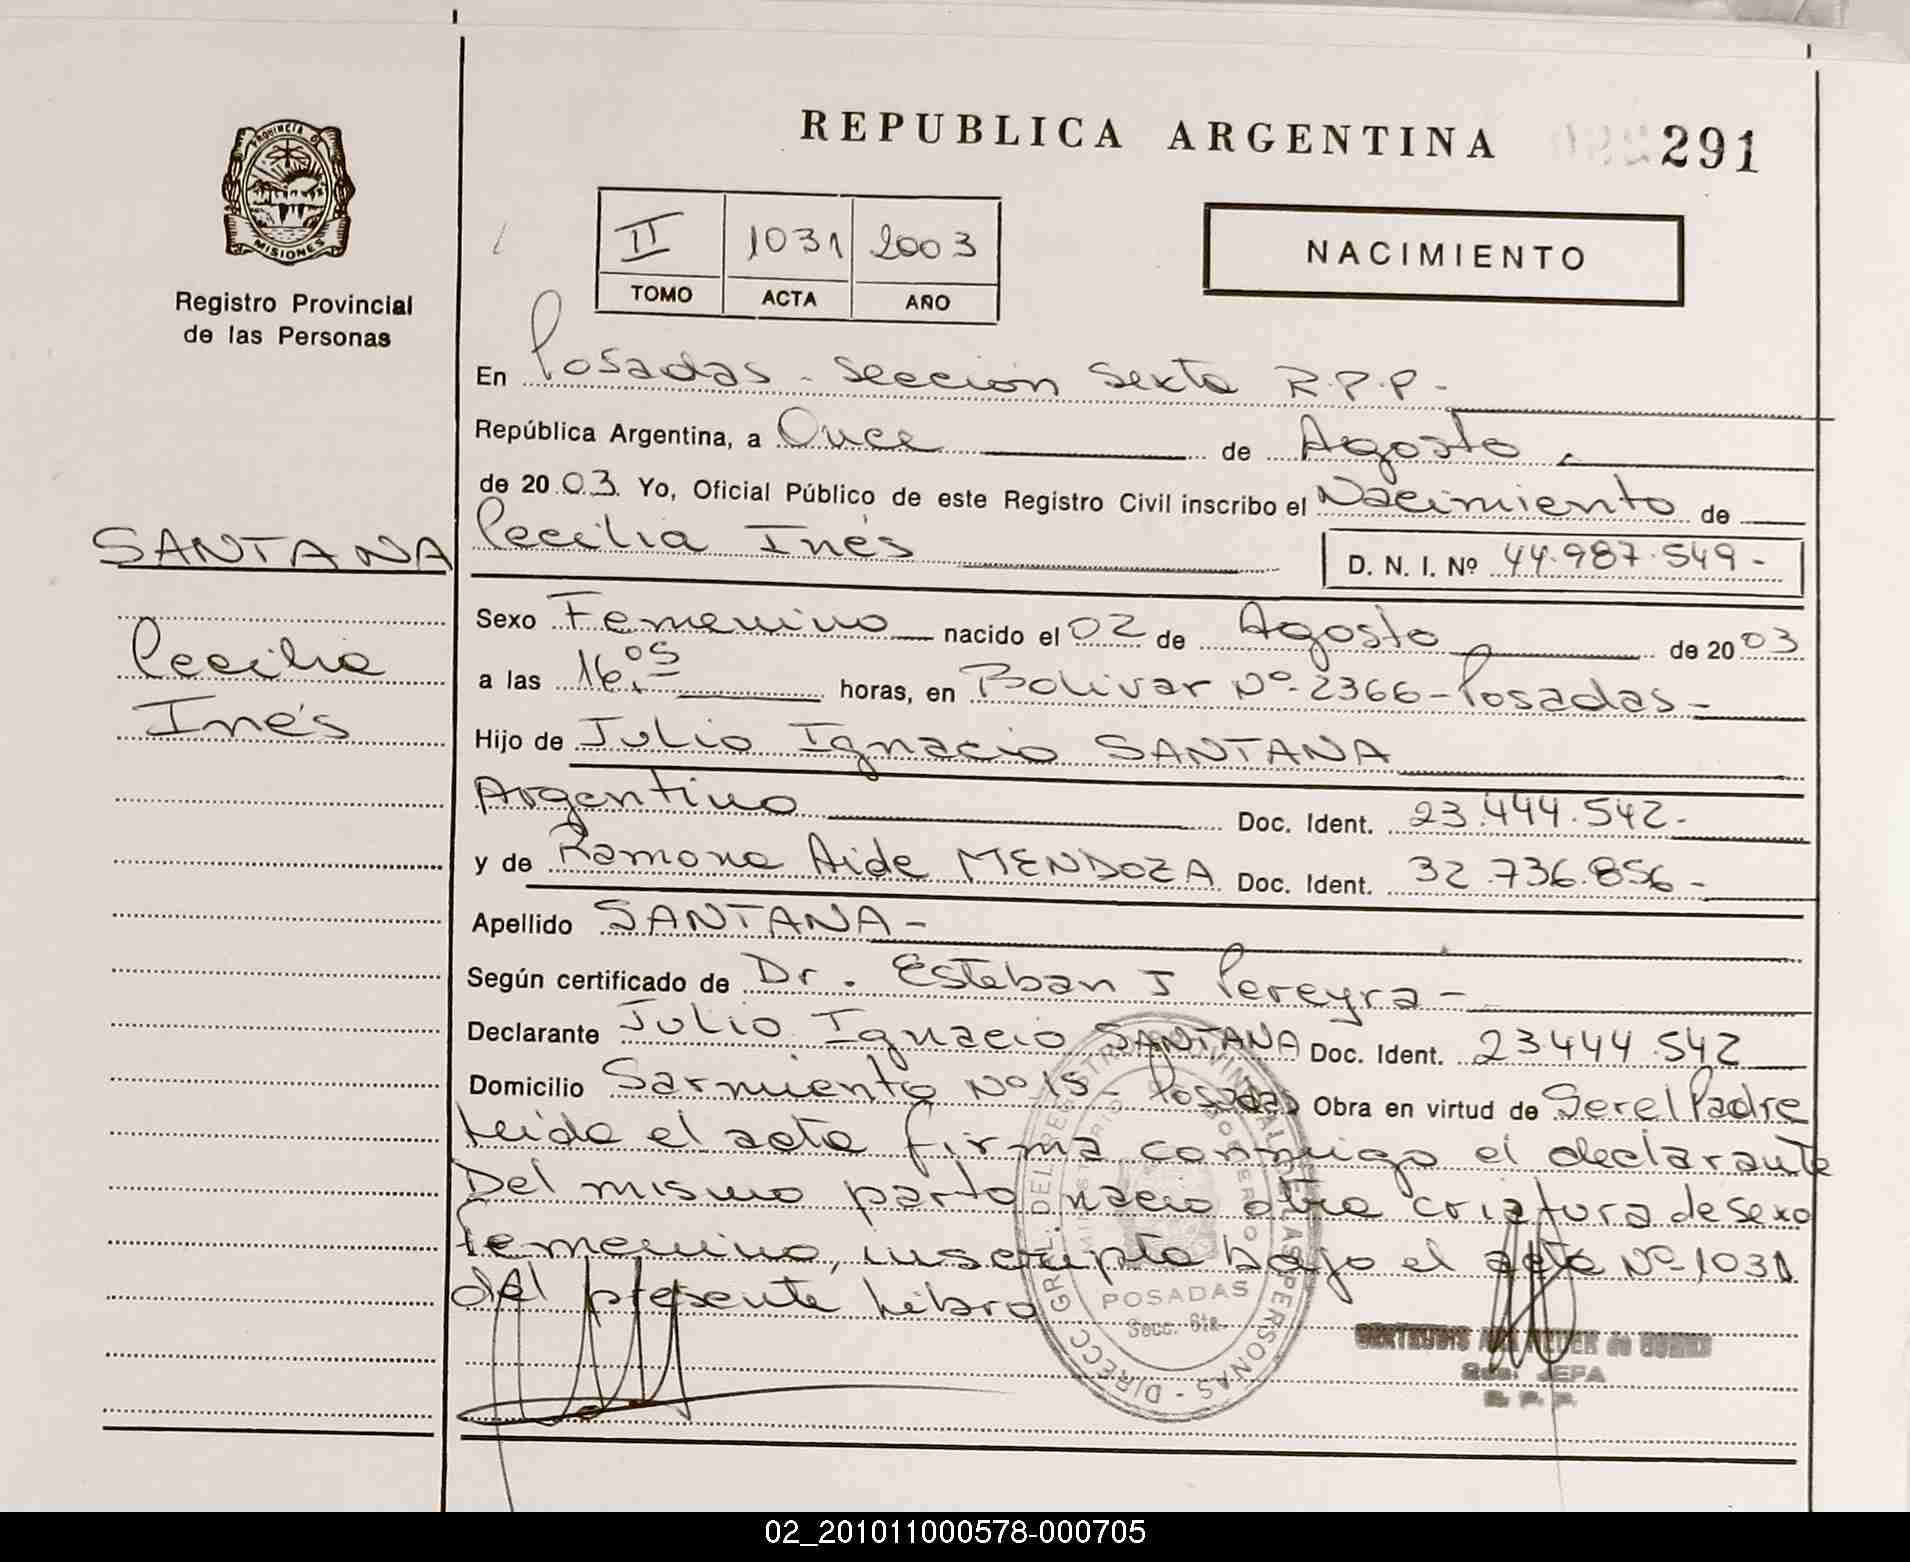 REPUBLICA ARGENTINA
291
PROVINCIA D
MISIONES
Registro Provincial
de las Personas
II 1031 2003
TOMO ACTA AÑO
NACIMIENTO
En Posadas - Sección Sexta R.P.P.-
República Argentina, a Once de Agosto
de 20 03. Yo, Oficial Público de este Registro Civil inscribo el Nacimiento de
SANTANA
Cecilia
Inés
Cecilia Inés D. N. I. Nº 44.987.549-
Sexo Femenino nacido el 02 de Agosto de 20 03
a las 16.05 horas, en Bolivar Nº-2366-Posadas-
Hijo de Julio Ignacio SANTANA
Argentino Doc. Ident. 23.444.542-
y de Ramona Aide MENDOZA Doc. Ident. 32.736.856-
Apellido SANTANA-
Según certificado de Dr. Esteban J Pereyra-
Declarante Julio Ignacio SANTANA Doc. Ident. 23444.542
Domicilio Sarmiento Nº 15- Posadas Obra en virtud de Ser el Padre
Leida el acta firma conmigo el declarante
Del mismo parto nacio otra criatura de sexo
femenino, inscripta bajo el acta Nº 1031
del presente Libro
DIRECC GRL. DEL REGISTRO PROVINCIAL DE LAS PERSONAS -
POSADAS
Secc. 6ta.
JEFA
R. P. P.
02_201011000578-000705